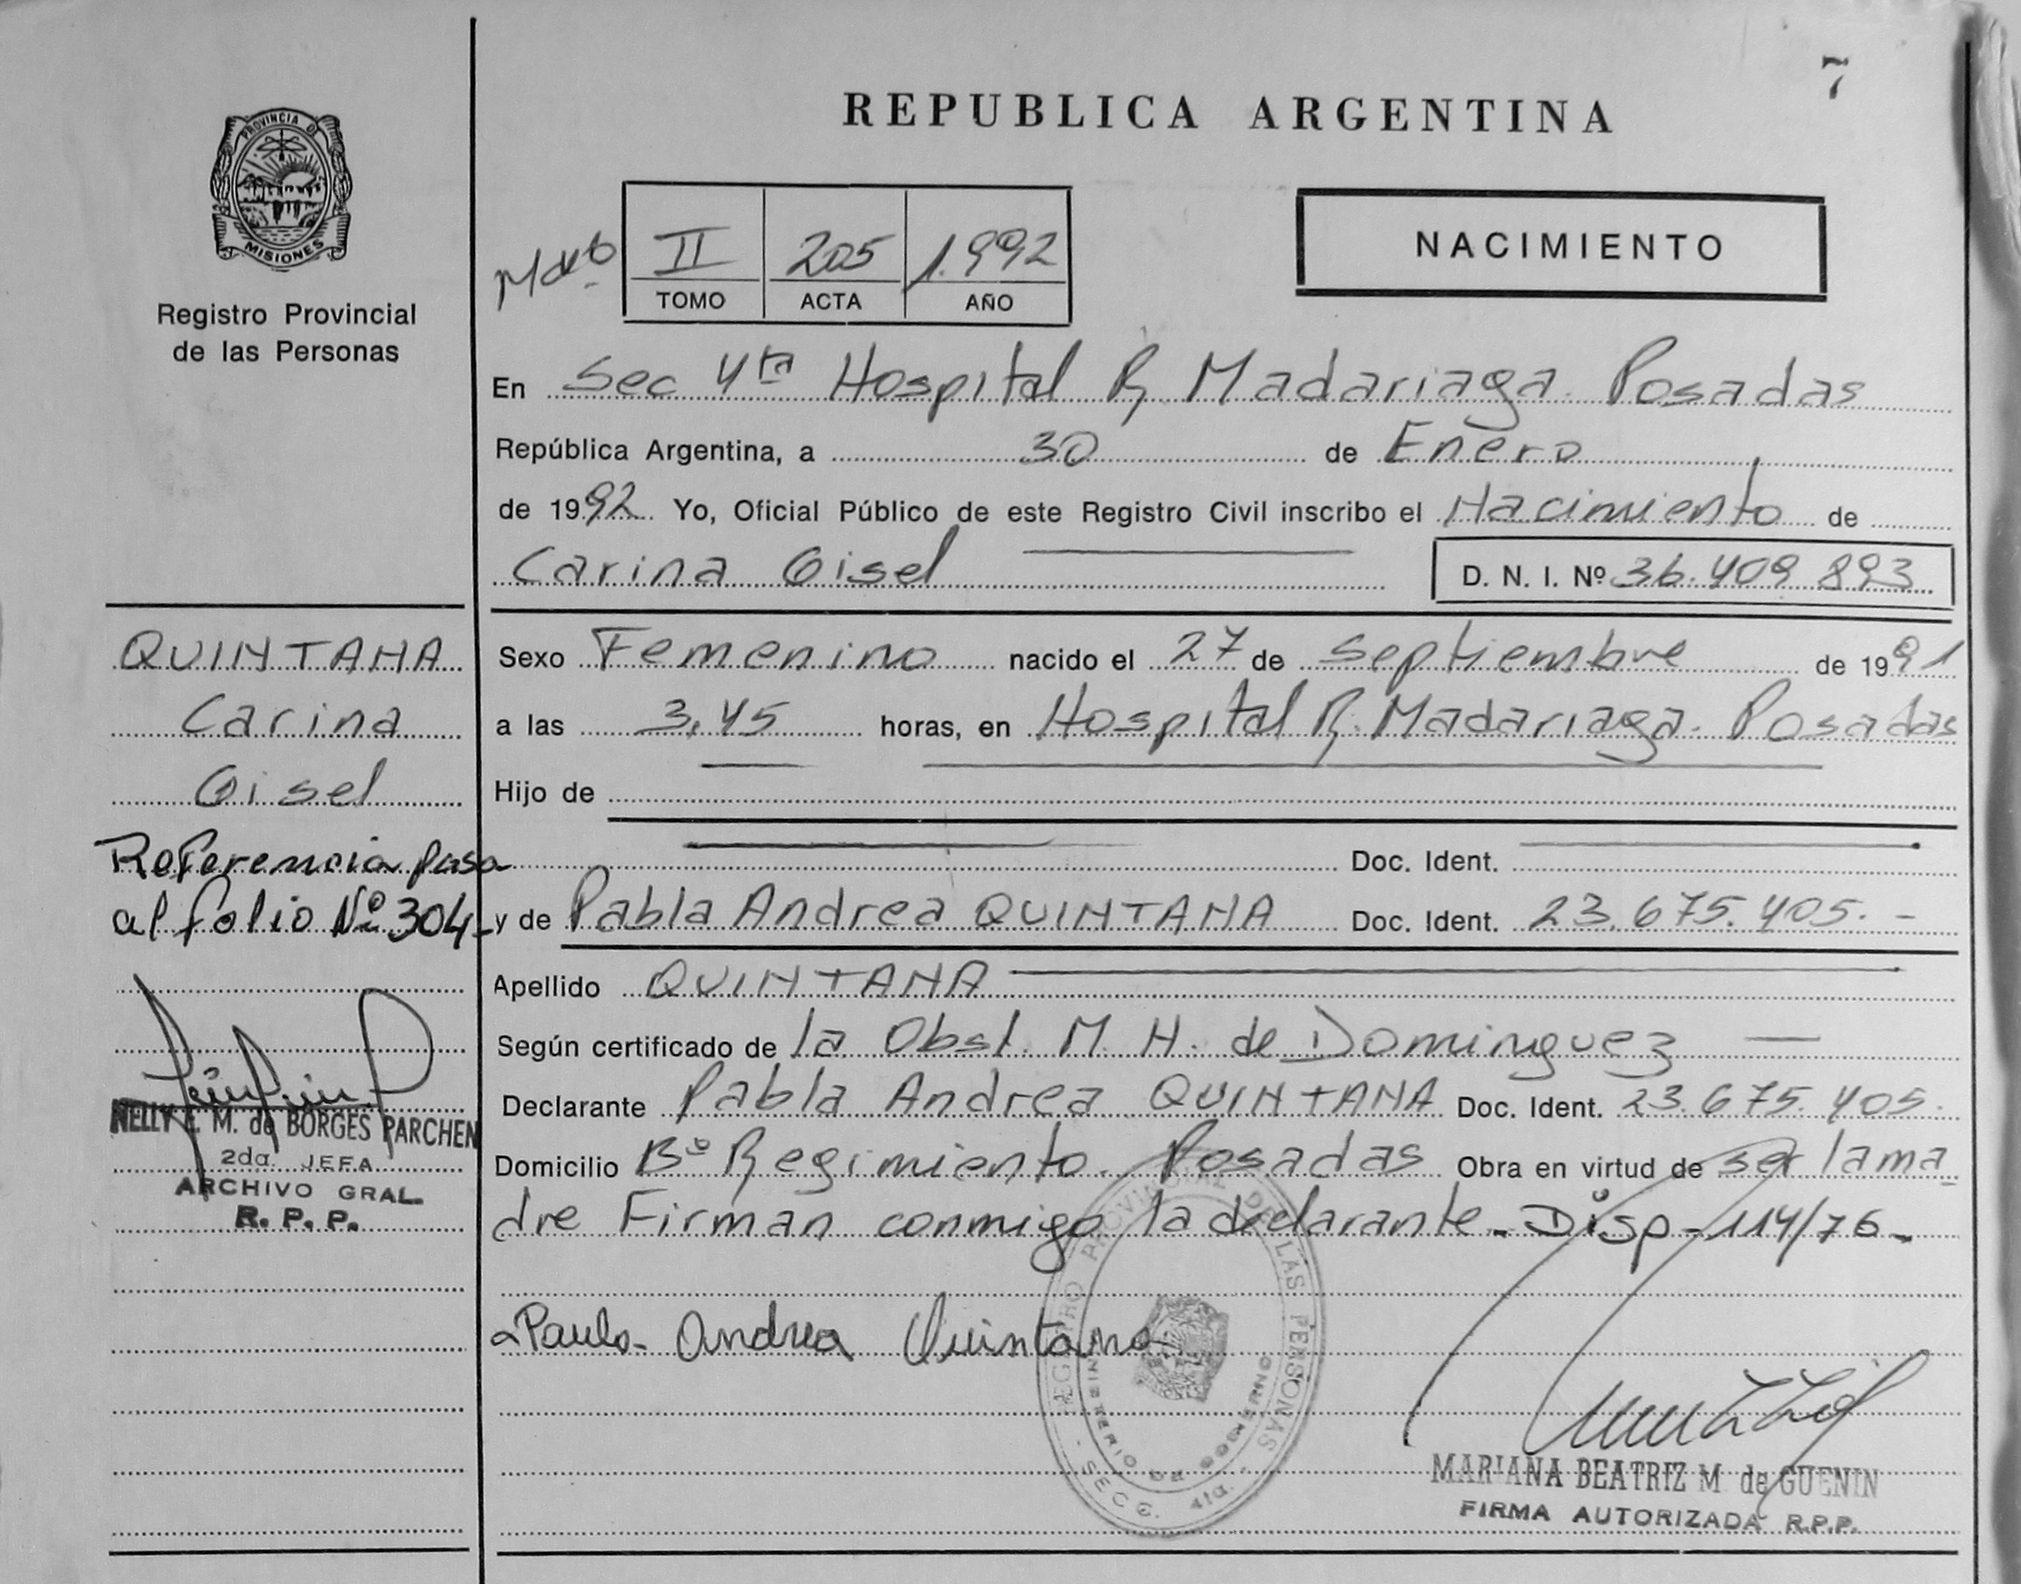 7
REPUBLICA ARGENTINA
PROVINCIA DE
MISIONES
Registro Provincial
de las Personas
II 205 1.992
TOMO ACTA AÑO
NACIMIENTO
En Sec 4ta Hospital R. Madariaga. Posadas
República Argentina, a 30 de Enero
de 1992 Yo, Oficial Público de este Registro Civil inscribo el Nacimiento de
Carina Gisel D. N. I. Nº 36.409.893
QUINTANA
Carina
Gisel
Referencia pasa
al folio Nº 304-
NELLY E. M. de BORGES PARCHEN
2da. JEFA
ARCHIVO GRAL.
R. P. P.
Sexo Femenino nacido el 27 de septiembre de 1991
a las 3,45 horas, en Hospital R. Madariaga. Posadas
Hijo de
Doc. Ident.
y de Pabla Andrea QUINTANA Doc. Ident. 23.675.405.-
Apellido QUINTANA
Según certificado de la Obst. M. H. de Dominguez
Declarante Pabla Andrea QUINTANA Doc. Ident. 23.675.405.
Domicilio Bº Regimiento. Posadas Obra en virtud de ser la ma
dre Firman conmigo la declarante - Disp - 114/76 -
Andrea Quintana
REGISTRO PROVINCIAL DE LAS PERSONAS
MINISTERIO DE GOBIERNO
- SECC. 4ta. -
MARIANA BEATRIZ M de GUENIN
FIRMA AUTORIZADA R.P.P.